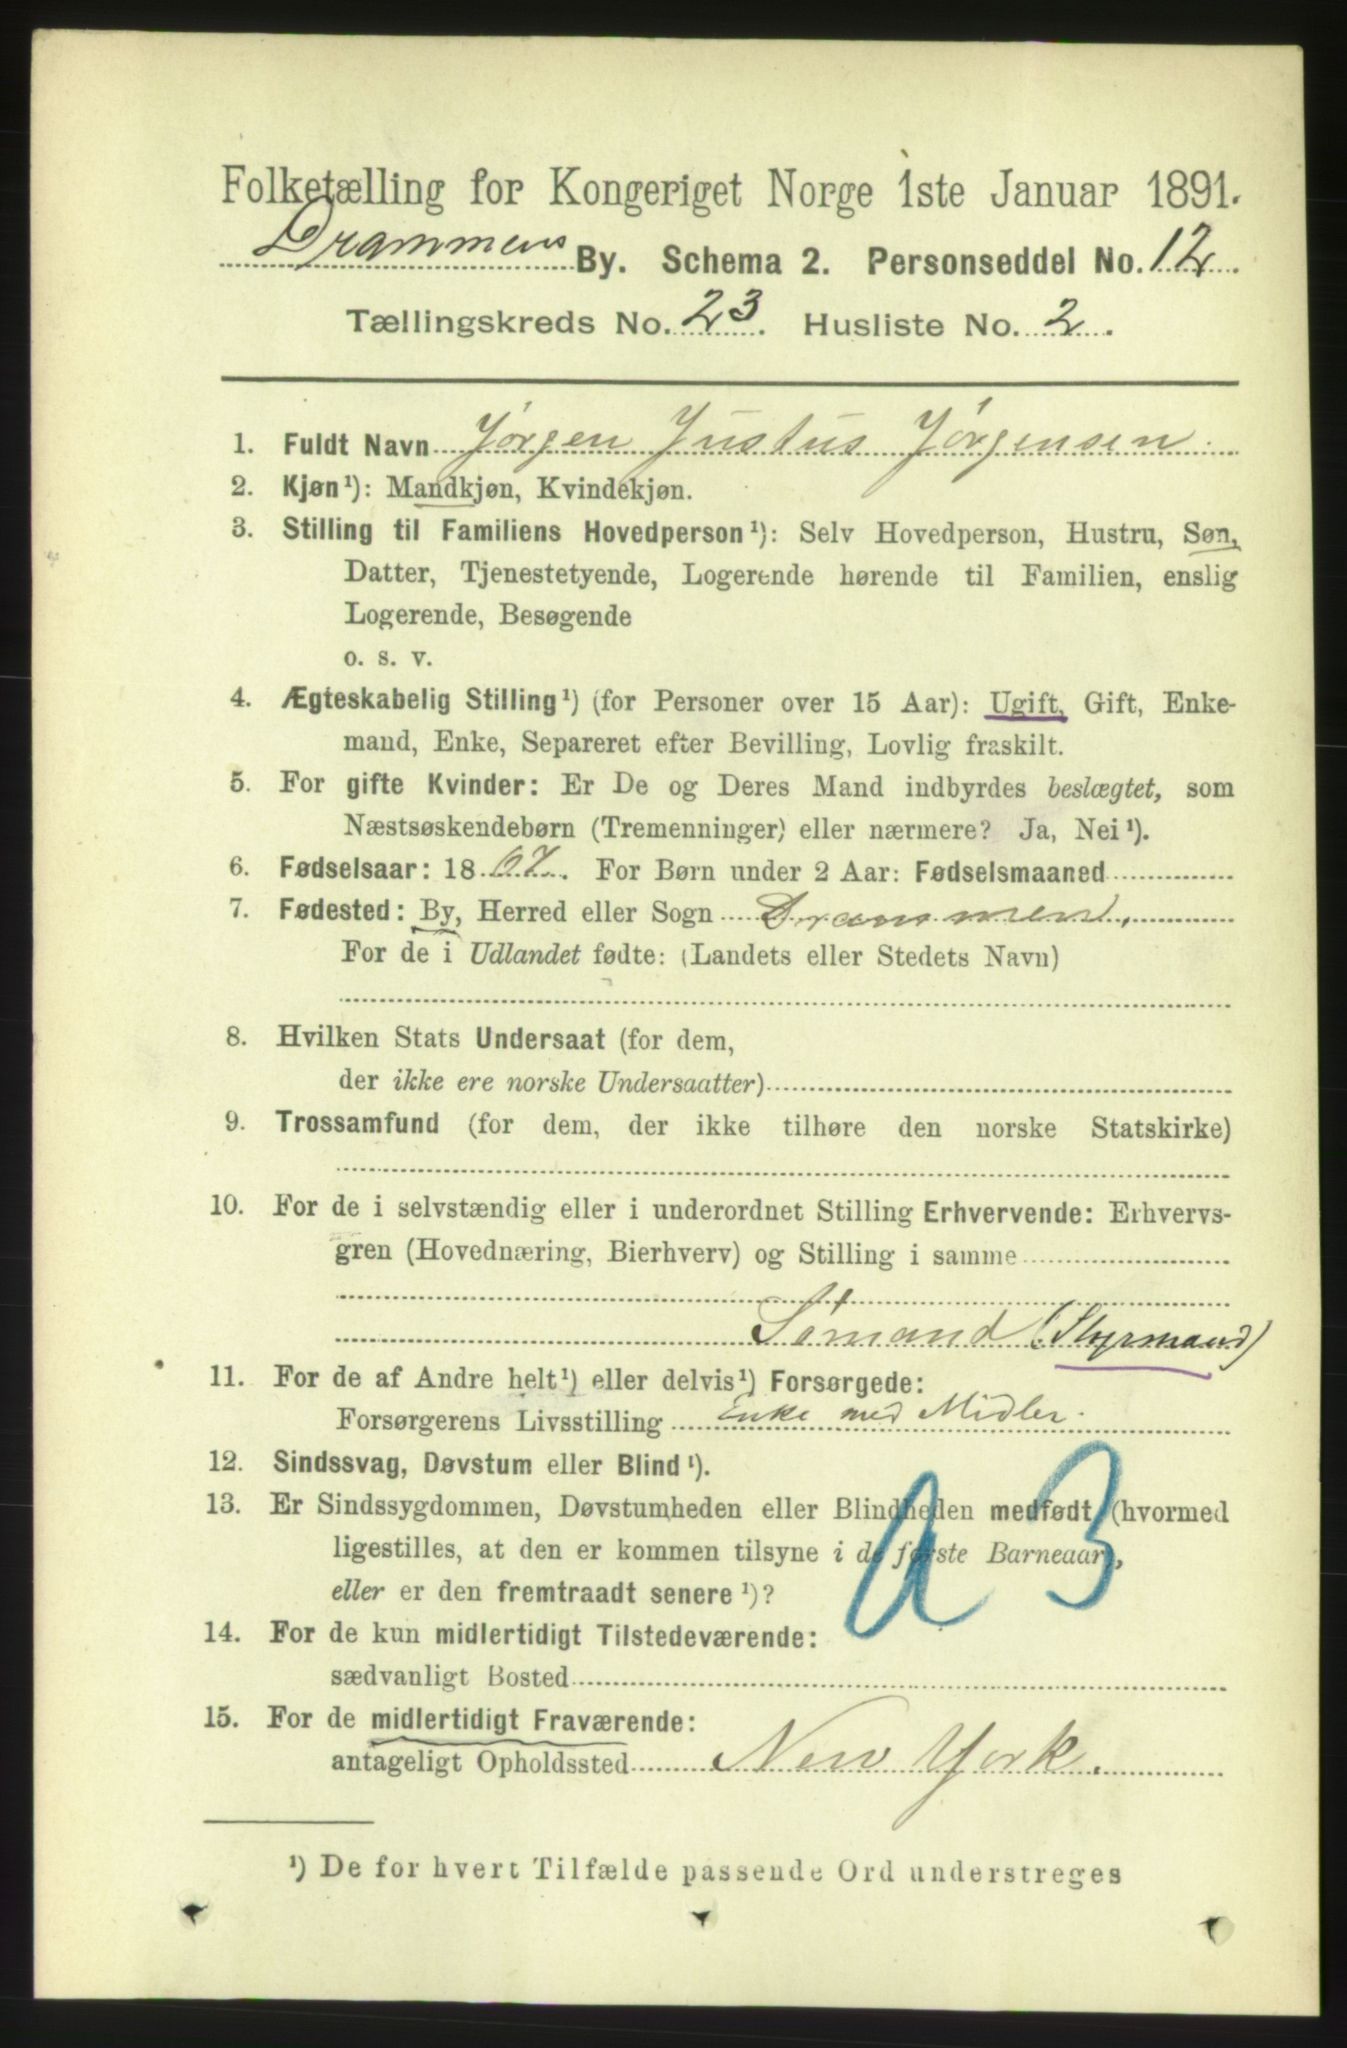 Folketælling for Kongeriget Norge 1ste Januar 1891.
Drammens By. Schema 2. Personseddel No. 12
Tællingskreds No. 23. Husliste No. 2.
1. Fuldt Navn Jörgen Justus Jörgensen.
2. Kjøn¹): Mandkjøn, Kvindekjøn.
3. Stilling til Familiens Hovedperson¹): Selv Hovedperson, Hustru, Søn,
Datter, Tjenestetyende, Logerende hørende til Familien, enslig
Logerende, Besøgende
o. s. v.
4. Ægteskabelig Stilling¹) (for Personer over 15 Aar): Ugift, Gift, Enke-
mand, Enke, Separeret efter Bevilling, Lovlig fraskilt.
5. For gifte Kvinder: Er De og Deres Mand indbyrdes beslægtet, som
Næstsøskendebørn (Tremenninger) eller nærmere? Ja, Nei¹).
6. Fødselsaar: 1867. For Børn under 2 Aar: Fødselsmaaned
7. Fødested: By, Herred eller Sogn Drammen,
For de i Udlandet fødte: (Landets eller Stedets Navn)
8. Hvilken Stats Undersaat (for dem,
der ikke ere norske Undersaatter)
9. Trossamfund (for dem, der ikke tilhøre den norske Statskirke)
10. For de i selvstændig eller i underordnet Stilling Erhvervende: Erhvervs-
gren (Hovednæring, Bierhverv) og Stilling i samme
Sömand (Styrmand)
11. For de af Andre helt¹) eller delvis¹) Forsørgede:
Forsørgerens Livsstilling Enke med Midler.
12. Sindssvag, Døvstum eller Blind¹).
13. Er Sindssygdommen, Døvstumheden eller Blindheden medfødt (hvormed
ligestilles, at den er kommen tilsyne i de første Barneaar),
eller er den fremtraadt senere¹)?
a 3
14. For de kun midlertidigt Tilstedeværende:
sædvanligt Bosted
15. For de midlertidigt Fraværende:
antageligt Opholdssted New York.
¹) De for hvert Tilfælde passende Ord understreges